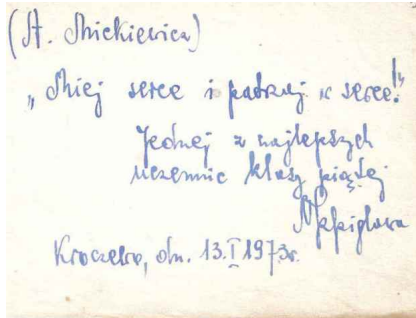 (A. Mickiewicz)
„Miej serce i patrzaj w serce!"
Jednej z najlepszych
uczennic klasy piątej
Kroczewo, dn. 13.I 1973r.